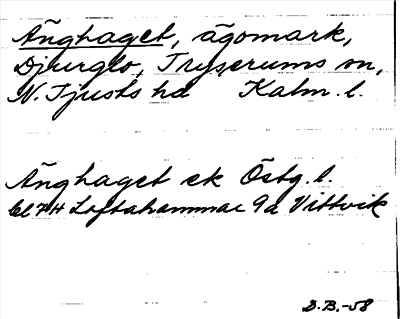 Änghaget, ägomark,
Djurglo, Tryserums sn,
N. Tjusts hd Kalm. l.
Änghaget ek Östg. l.
bl 7H Loftahammar 9d Vittvik
D.B.-58